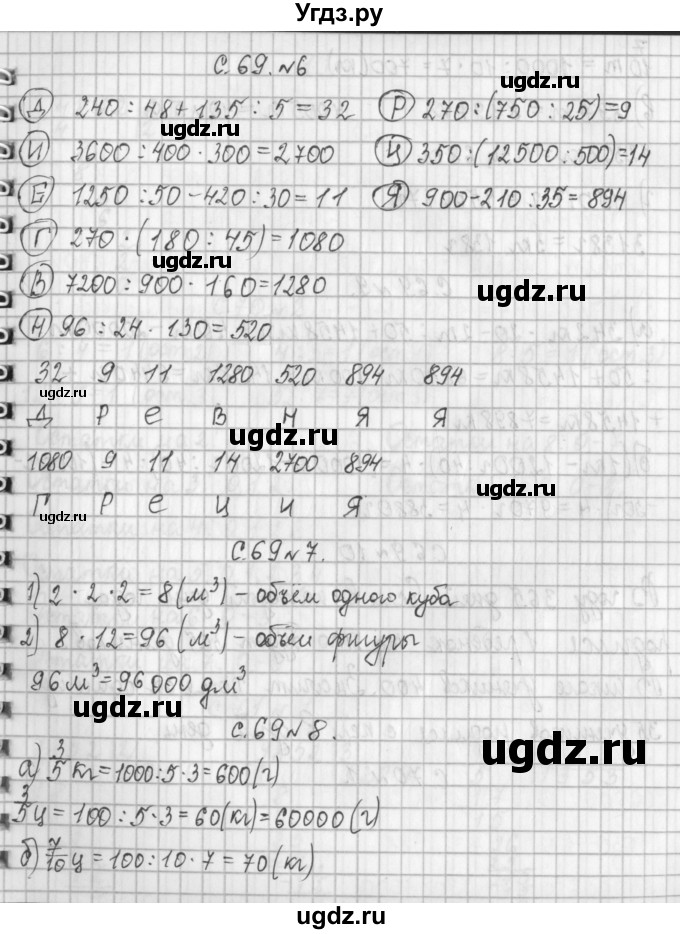 Угдз.ру
С. 69. №6
Д 240 : 48 + 135 : 5 = 32
Р 270 : (750 : 25) = 9
ugdz.ru
И 3600 : 400 · 300 = 2700
Ц 350 : (12500 : 500) = 14
Е 1250 : 50 - 420 : 30 = 11
Я 900 - 210 : 35 = 894
Г 270 · (180 : 45) = 1080
ugdz.ru
В 7200 : 900 · 160 = 1280
ugdz.ru
Н 96 : 24 · 130 = 520
32 9 11 1280 520 894 894
ugdz.ru
Д Р Е В Н Я Я
ugdz.ru
1080 9 11 14 2700 894
Г Р Е Ц И Я
ugdz.ru
С. 69 №7.
1) 2 · 2 · 2 = 8 (м³) - объём одного куба
2) 8 · 12 = 96 (м³) - объём фигуры
96 м³ = 96 000 дм³
ugdz.ru
С. 69 №8.
ugdz.ru
а) 3/5 кг = 1000 : 5 · 3 = 600 (г)
3/5 ц = 100 : 5 · 3 = 60 (кг) = 60000 (г)
б) 7/10 ц = 100 : 10 · 7 = 70 (кг)
ugdz.ru